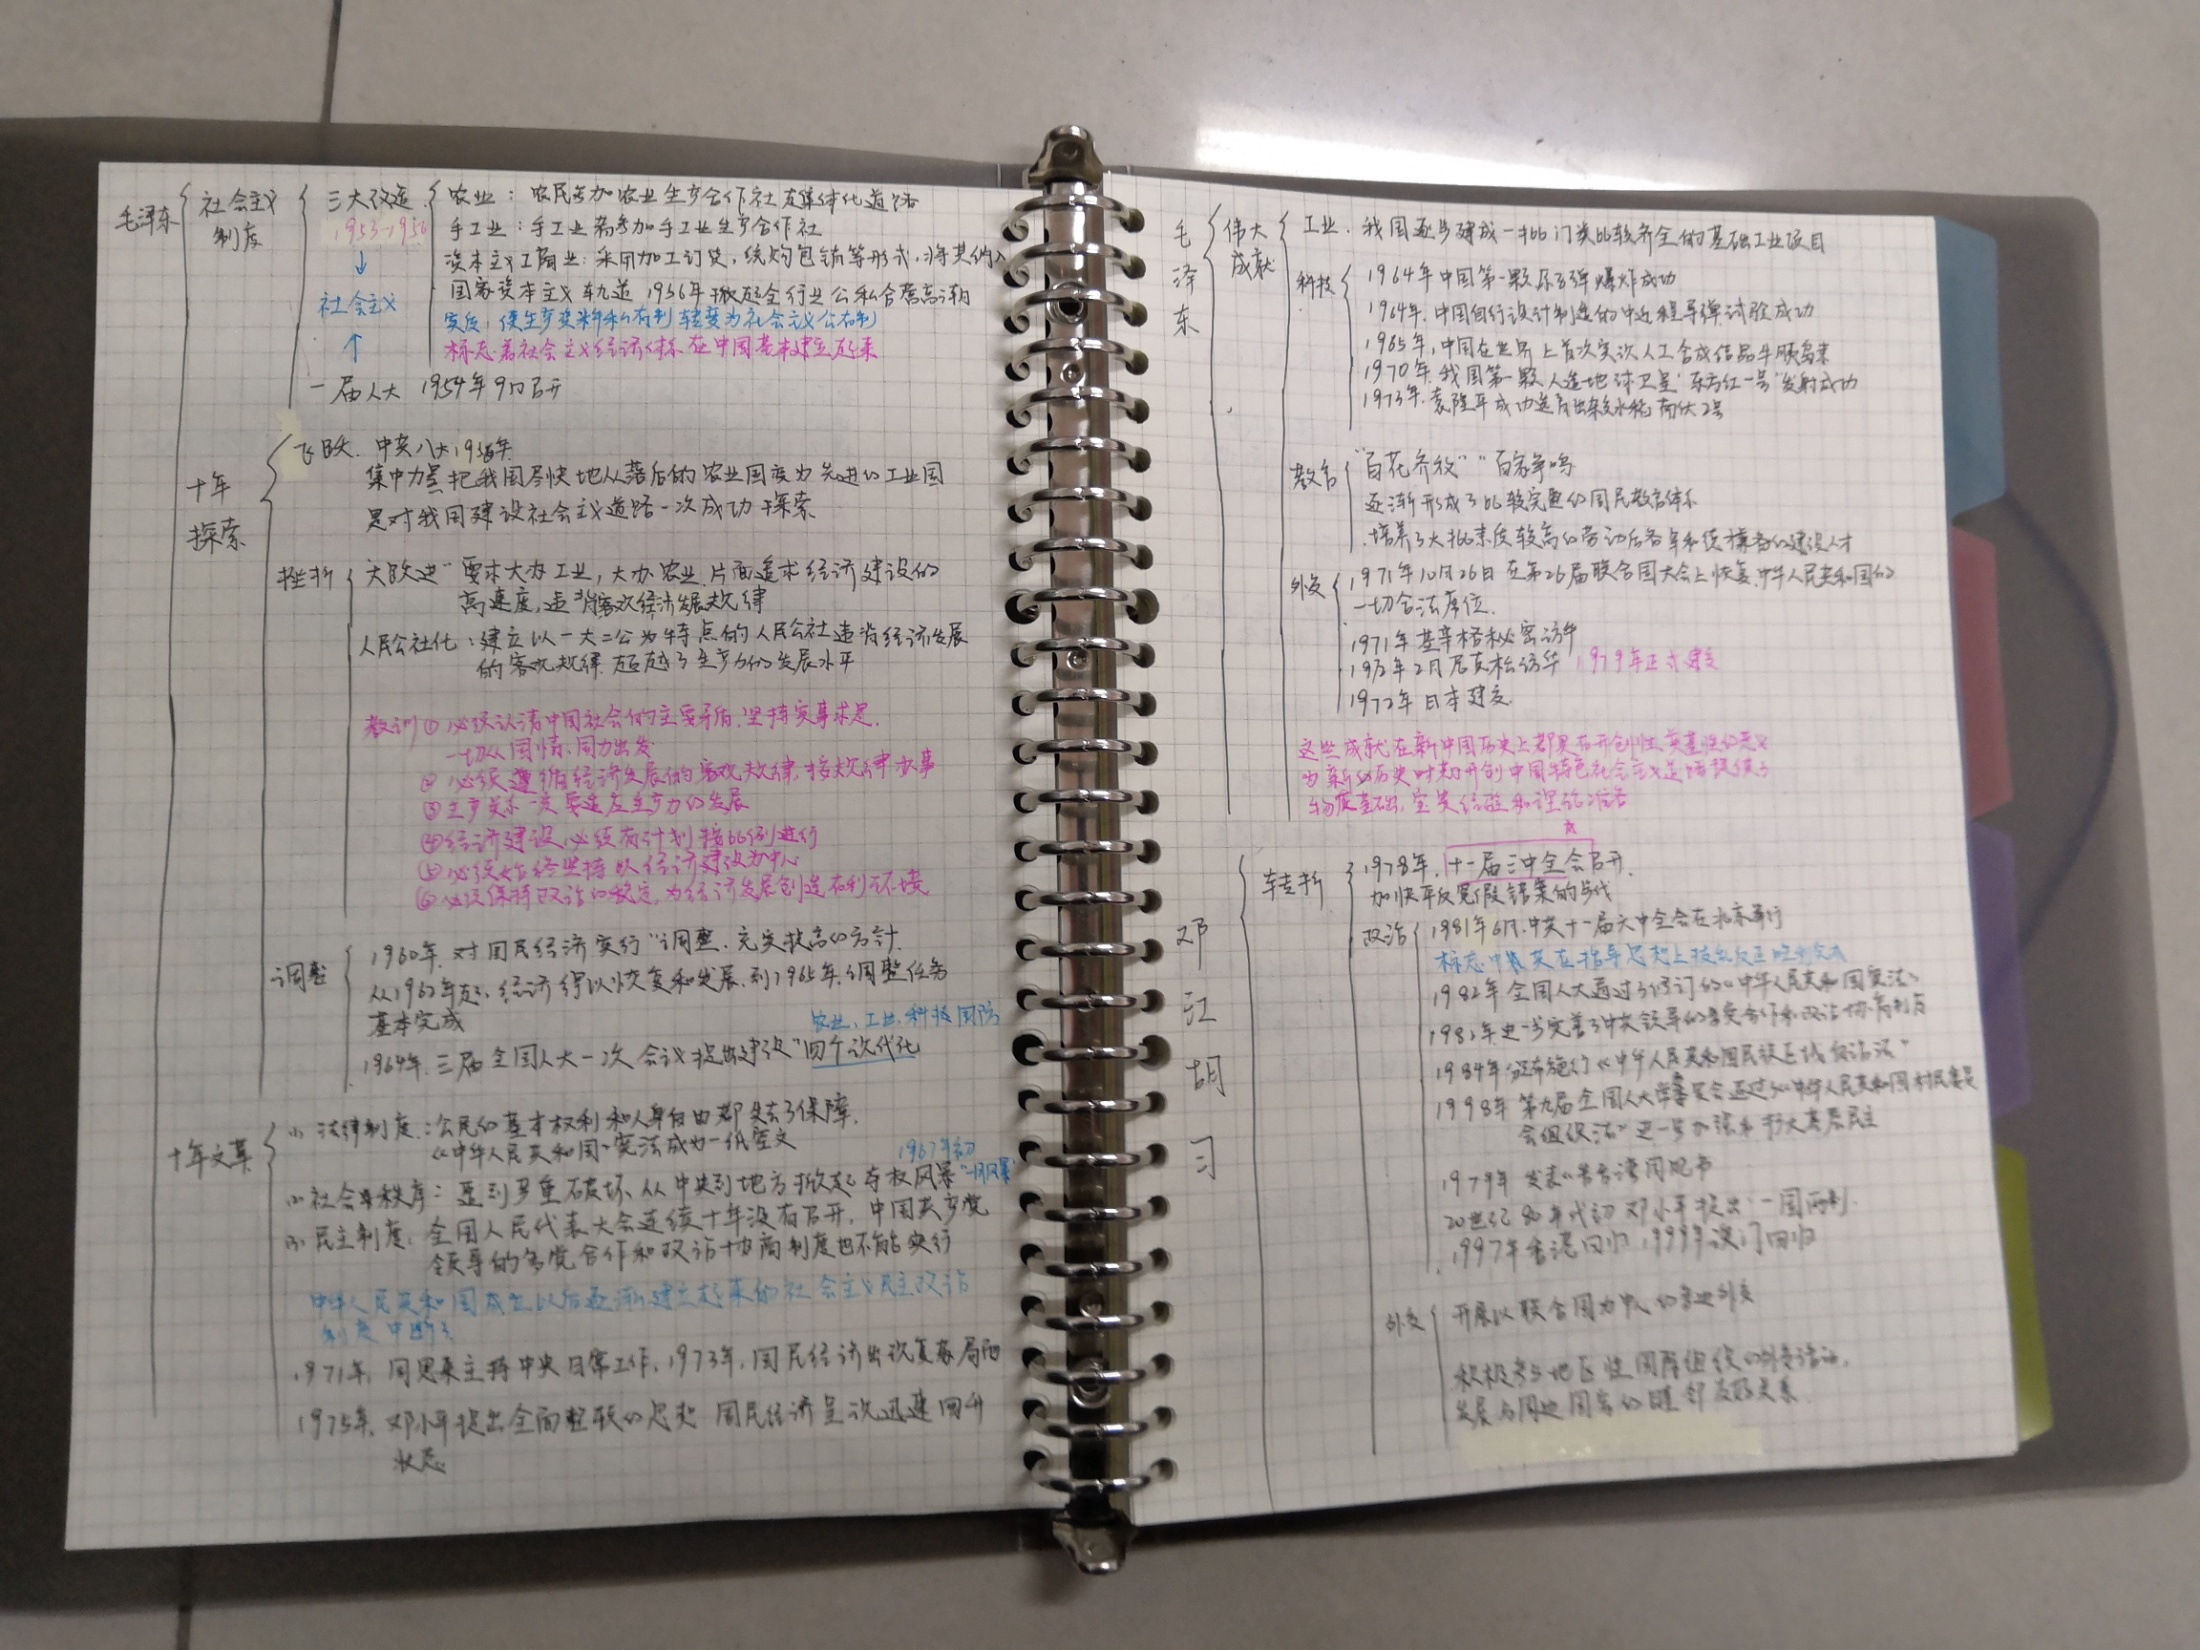 毛泽东
社会主义
制度
三大改造
1953-1956
↓
社会主义
↑
农业：农民参加农业生产合作社走集体化道路
手工业：手工业者参加手工业生产合作社
资本主义工商业：采用加工订货，统购包销等形式，将其纳入
国家资本主义轨道 1956年掀起全行业公私合营高潮
实质：使生产资料私有制转变为社会主义公有制
标志着社会主义经济体系在中国基本建立起来
一届人大 1954年9月召开
十年
探索
飞跃 中共八大1956年
集中力量把我国尽快地从落后的农业国变为先进的工业国
是对我国建设社会主义道路一次成功探索
挫折
大跃进" 要求大办工业，大办农业 片面追求经济建设的
高速度，违背客观经济发展规律
人民公社化：建立以一大二公为特点的人民公社违背经济发展
的客观规律 超越了生产力的发展水平
教训① 必须认清中国社会的主要矛盾，坚持实事求是，
一切从国情、国力出发
② 必须遵循经济发展的客观规律，按规律办事
③ 生产关系一定要适应生产力的发展
④经济建设必须有计划按比例进行
⑤必须始终坚持以经济建设为中心
⑥必须保持政治的稳定，为经济发展创造有利环境
调整
1960年 对国民经济实行"调整、充实提高的方针
从1962年起，经济得以恢复和发展，到1965年，调整任务
基本完成
农业、工业、科技国防
1964年，三届全国人大一次会议提出建设"四个现代化
十年文革
(1) 法律制度：公民的基本权利和人身自由都失去了保障，
《中华人民共和国》宪法成为一纸空文
1967年初
(2) 社会秩序：遭到严重破坏，从中央到地方掀起夺权风暴
(3) 民主制度：全国人民代表大会连续十年没有召开，中国共产党
领导的多党合作和政治协商制度也不能实行
中华人民共和国成立以后逐渐建立起来的社会主义民主政治
制度中断了
1971年，周恩来主持中央日常工作，1973年，国民经济出现复苏局面
1975年，邓小平提出全面整顿的思想 国民经济呈现迅速回升
状态
毛
泽
东
伟大
成就
工业．我国逐步建成一批门类比较齐全的基础工业项目
科技
1964年中国第一颗原子弹爆炸成功
1964年，中国自行设计制造的中近程导弹试验成功
1965年，中国在世界上首次实现人工合成结晶牛胰岛素
1970年，我国第一颗人造地球卫星"东方红一号"发射成功
1973年，袁隆平成功选育出杂交水稻南优2号
教育
"百花齐放""百家争鸣
逐渐形成了比较完整的国民教育体系
培养了大批素质较高的劳动后备军和优秀的建设人才
外交
1971年10月26日 在第26届联合国大会上恢复中华人民共和国的
一切合法席位．
1971年基辛格秘密访华
1972年2月尼克松访华 1979年正式建交
1972年 日本建交
这些成就在新中国历史上都具有开创性、奠基性的意义
为新的历史时期开创中国特色社会主义道路提供了
物质基础，宝贵经验和理论准备
邓
江
胡
习
转折
1978年，十一届三中全会召开
加快平反冤假错案的步伐
政治
1981年6月，中共十一届六中全会在北京举行
1982年 全国人大通过了修订的《中华人民共和国宪法》
1982年进一步完善了中共领导的多党合作和政治协商制度
1984年颁布施行《中华人民共和国民族区域自治法"
1998年 第九届全国人大常委会通过《中华人民共和国村民委员
会组织法" 进一步加强和扩大基层民主
1979年 发表《告台湾同胞书
20世纪80年代初 邓小平提出 一国两制．
1997年香港回归 1999年澳门回归
外交
开展以联合国为中心的多边外交
积极参与地区性国际组织的外交活动，
发展与周边国家的睦邻友好关系．